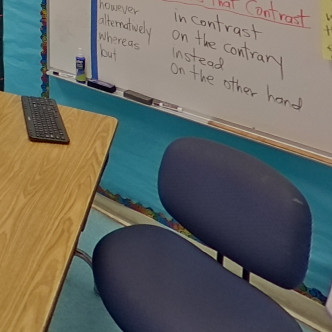 That Contrast
however
alternatively
whereas
but
in contrast
on the contrary
instead
on the other hand